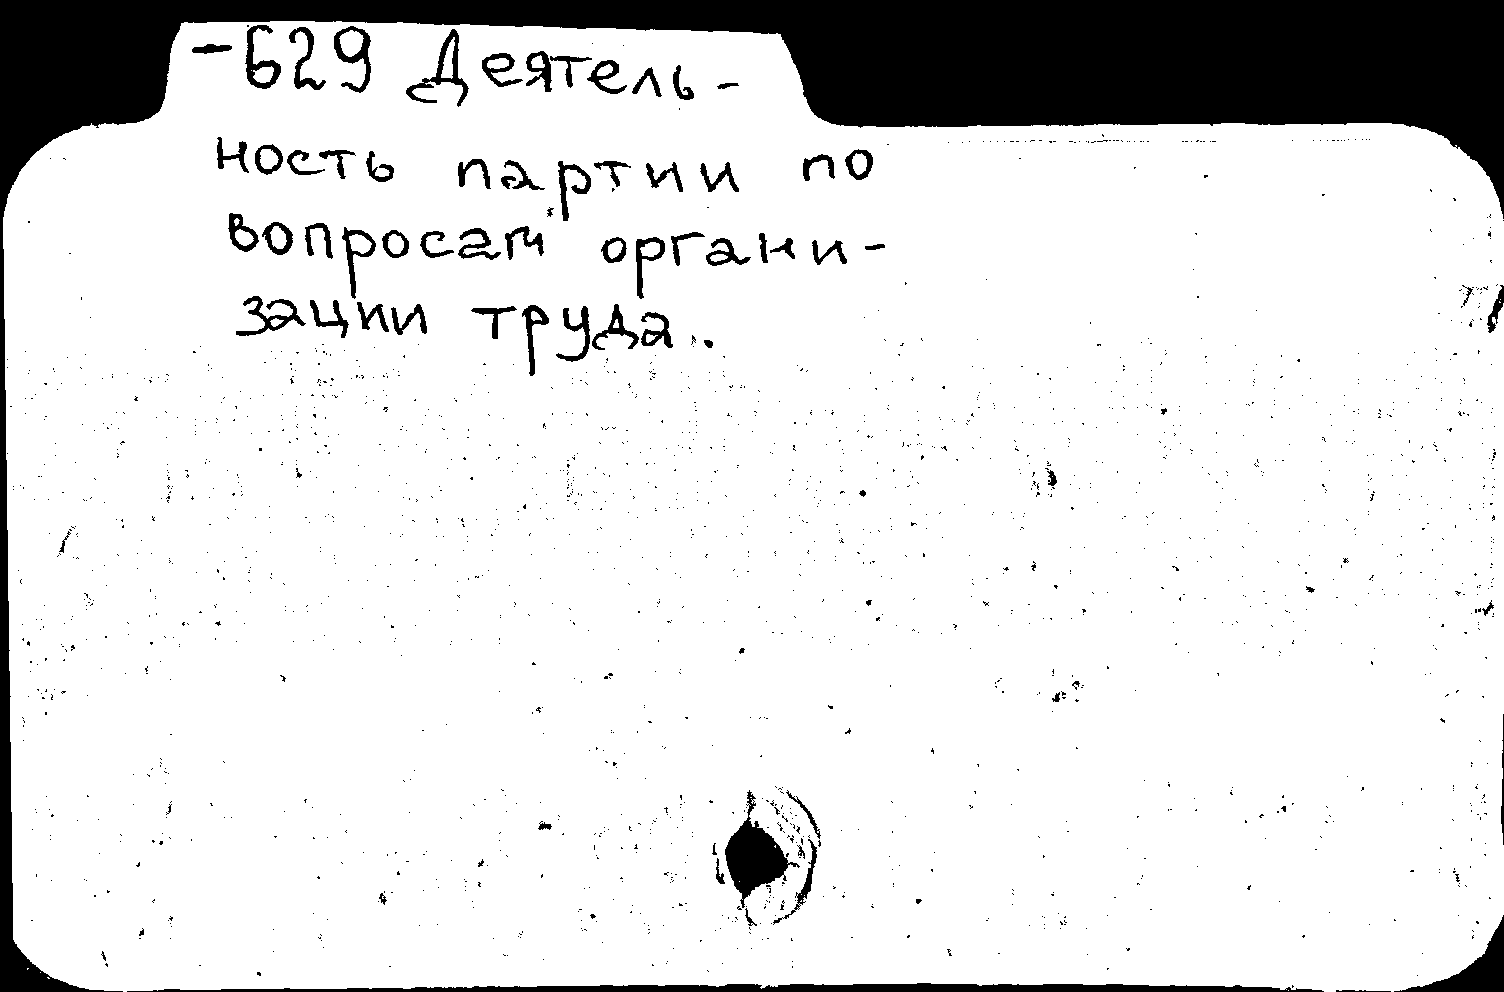 -629 Деятель-
ность партии по
вопросам органи-
зации труда.